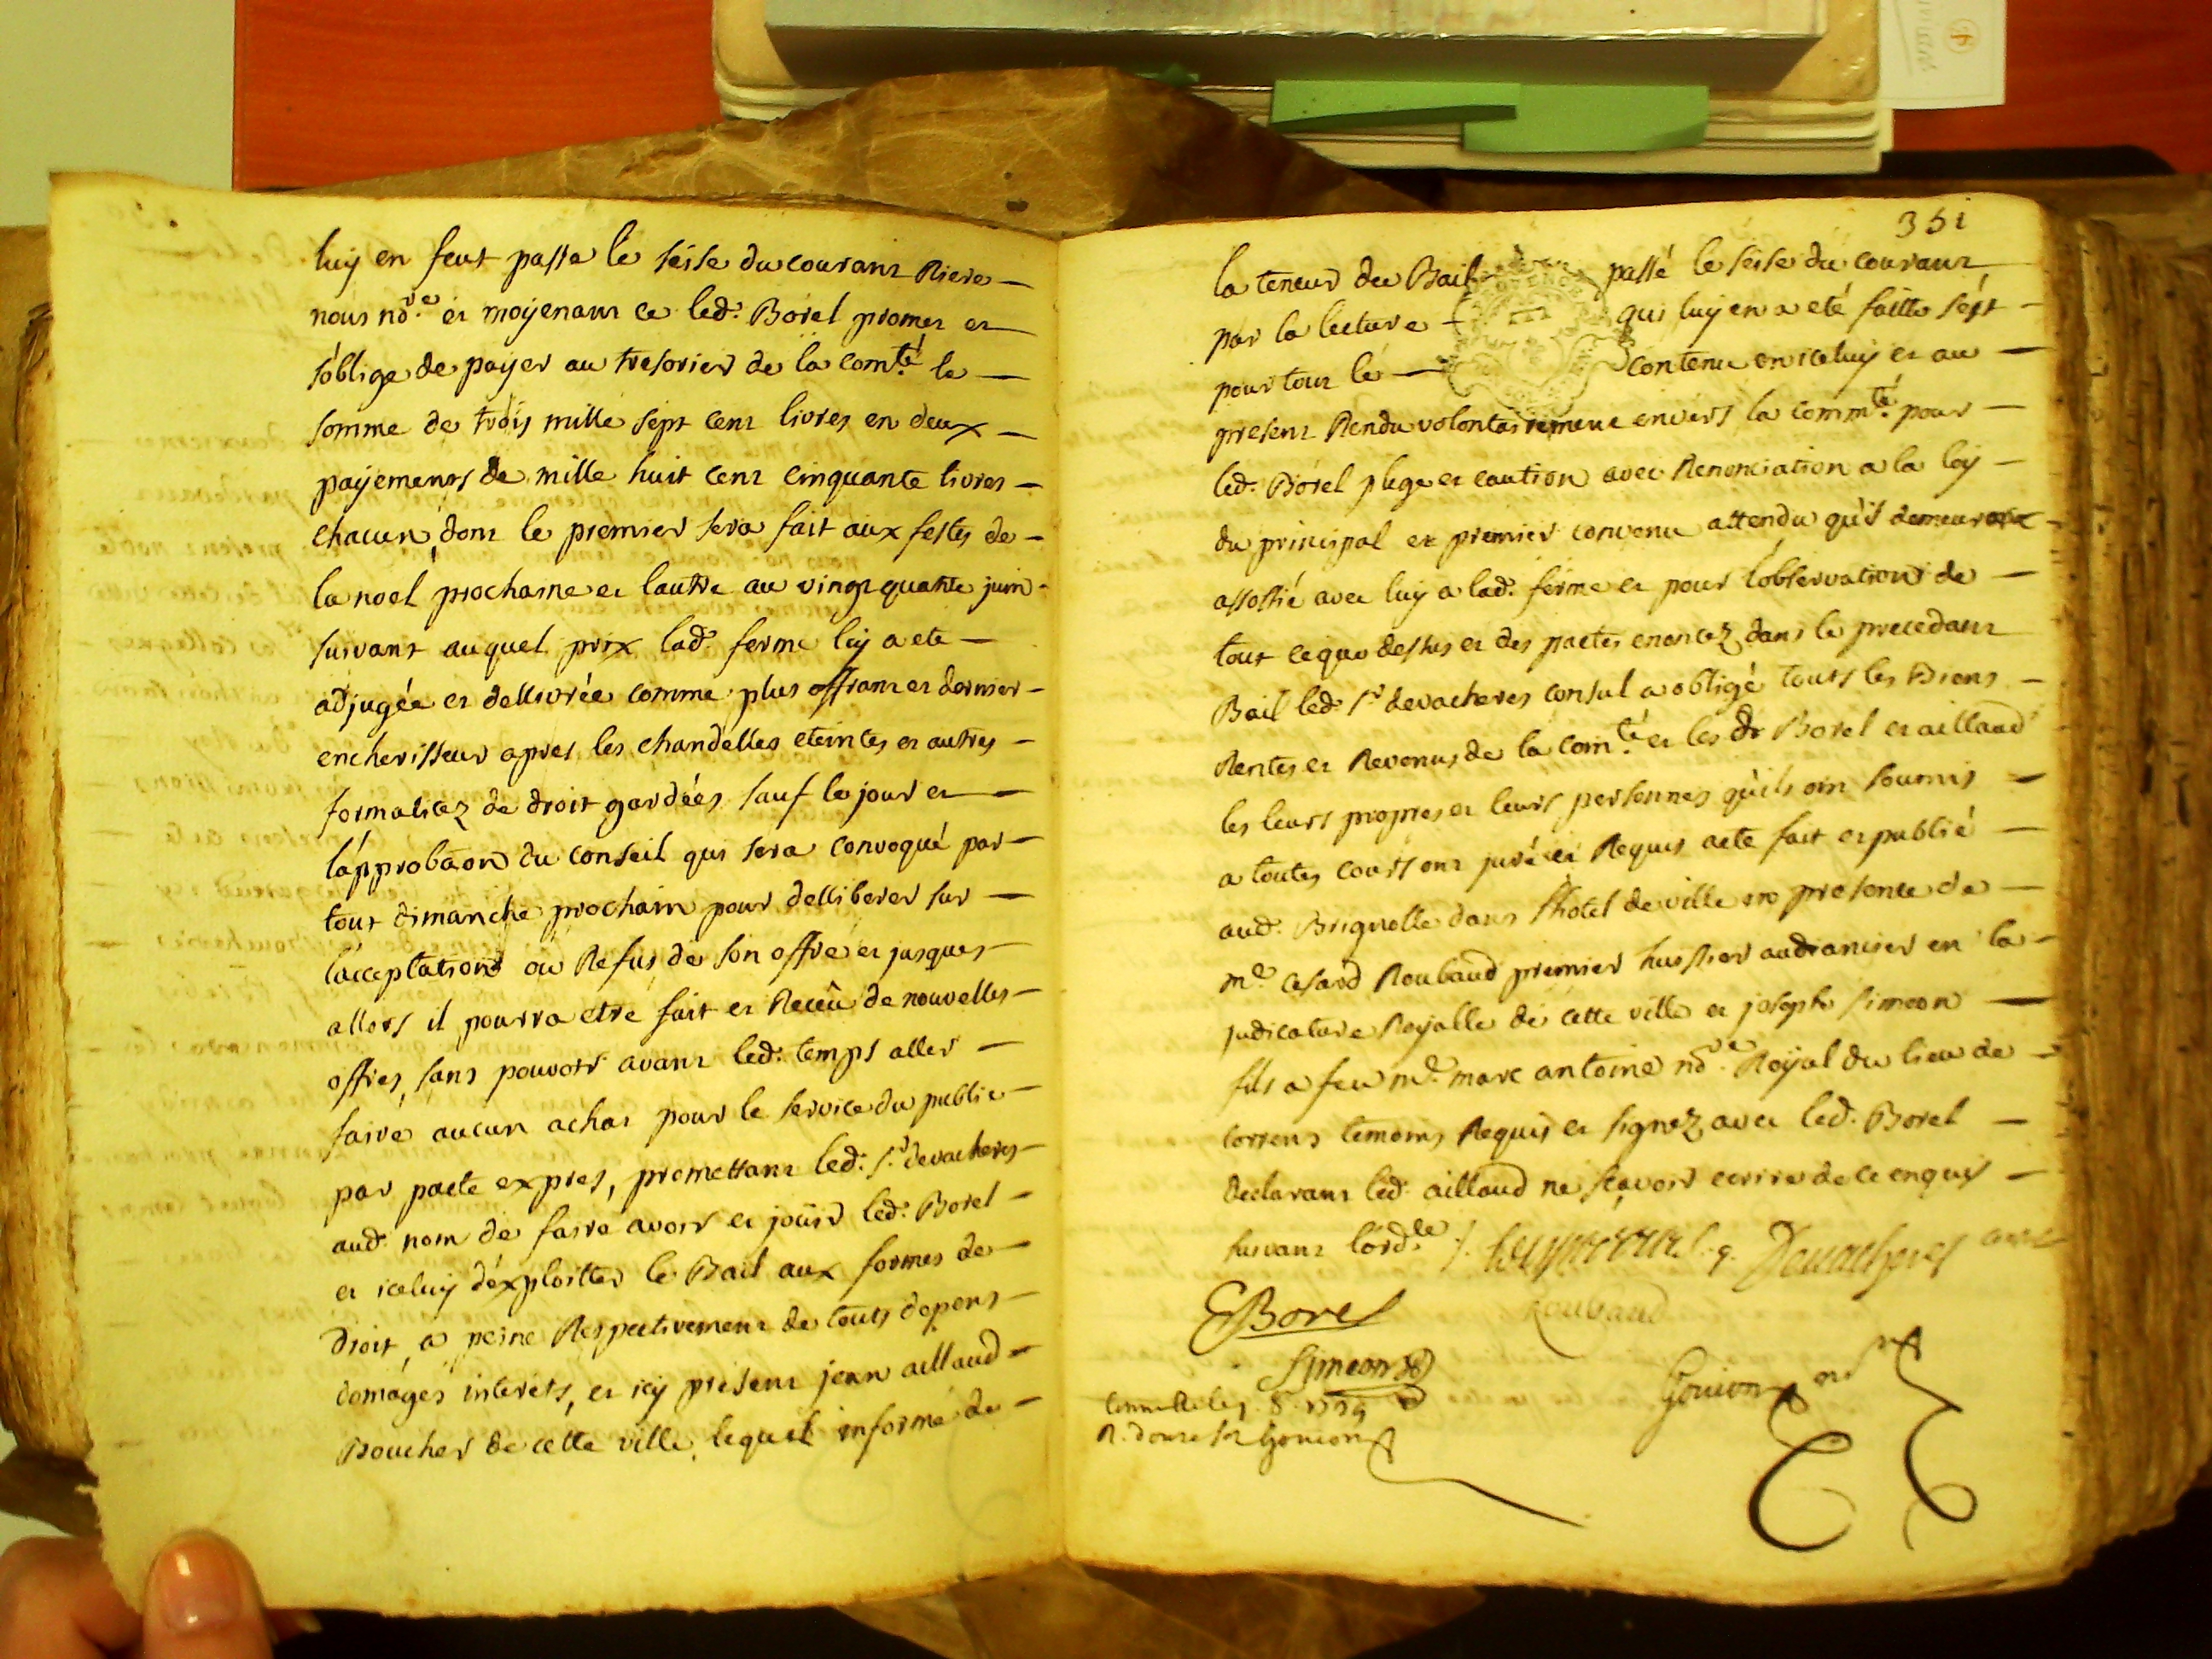 luy en feut passé le seise du courant Riere
nous no.re et moyenant ce led. Borel promet et
s'oblige de payer au tresorier de la com.té la
somme de trois mille sept cent livres en deux
payements de mille huit cent cinquante livres
chacun, dont le premier sera fait aux festes de
la noel prochaine et lautre au vingt quatre juin
suivant auquel prix lad. ferme luy a ete
adjugée et dellivrée comme plus offrant et dernier
encherisseur apres les chandelles eteintes et autres
formalitez de droit gardées sauf le jour et
l'approbaon du conseil qui sera convoqué par
tout dimanche prochain pour delliberer sur
l'acceptation ou Refus de son offre et jusques
allors il pourra etre fait et Receu de nouvelles
offres, sans pouvoir avant led. temps aller
faire aucun achat pour le service du public
par pacte expres, promettant led. s.r devacheres
aud. nom de faire avoir et jouir led. Borel
et iceluy d'exploitter le Bail aux formes de
Droit, a peine Respectivement de touts depens
domages interets, et icy present jean aillaud
Boucher de cette ville, lequel informé de
351
la teneur du Bail passé le seise du courant
par la lecture qui luy en a eté faitte
pour tout le contenu en iceluy et au
present Rendu volontairement envers la comm.té pour
led. Borel plege et caution avec Renonciation a la loy
du principal et premier convenu attendu qu'il
assossié avec luy a lad. ferme et pour l'observation de
tout ce que dessus et des pactes enoncez dans le precedant
Bail led. s.r devacheres consul a obligé touts les Biens
Rentes et Revenus de la com.té et les dt Borel et aillaud
les leurs propres et leurs personnes qu'ils ont soumis
a toutes cours ont juré et Requis acte fait et publié
aud. Brignolle dans lhotel de ville en presence de
m.e cesard Roubaud premier huissier audiancier en la
judicature Royalle de cette ville et joseph simeon
fils a feu m.e marc antoine no.re Royal du lieu de
correns temoins Requis et signez avec led. Borel
declarant led. aillaud ne sçavoir ecrire de ce enquis
suivant lord.ce /. Devacheres
EBorel Roubaud
Simeon Gouion
R. douze s. Gouion